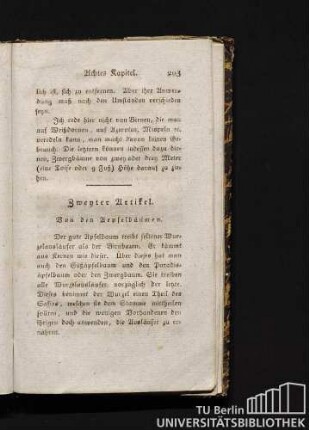 Achtes Kapitel. 203
lich ist, sich zu entfernen. Aber ihre Anwen-
dung muß nach den Umständen verschieden
seyn.
Ich rede hier nicht von Birnen, die man
auf Weißdornen, auf Azerolen, Mispeln ꝛc.
veredeln kann, man macht davon keinen Ge-
brauch. Die letztern können indessen dazu die-
nen, Zwergbäume von zwey oder drey Meter
(eine Toise oder 9 Fuß) Höhe daraus zu zie-
hen.
Zweyter Artikel.
Von den Aepfelbäumen.
Der gute Apfelbaum treibt seltener Wur-
zelausläufer als der Birnbaum. Er kömmt
aus Kernen wie dieser. Aber dieses hat man
auch den Süßäpfelbaum und den Paradis-
apfelbaum oder den Zwergbaum. Sie treiben
alle Wurzelausläufer vorzüglich der letzte.
Dieses benimmt der Wurzel einen Theil des
Saftes, welchen sie den Stamm mittheilen
würden, und die wenigen Vorhandenen den
ihrigen doch anwenden, die Ausläufer zu er-
nähren.
TU Berlin
UNIVERSITÄTSBIBLIOTHEK